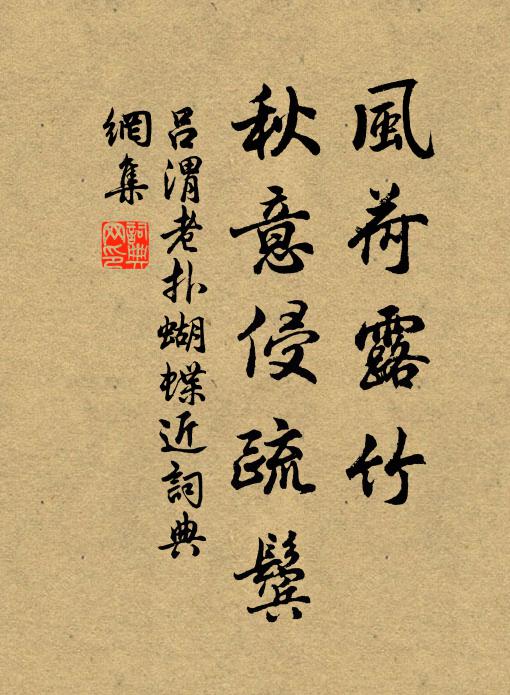 風荷露竹
秋意侵疏鬓
吕渭老扑蝴蝶近詞典
網集
詞典
网印